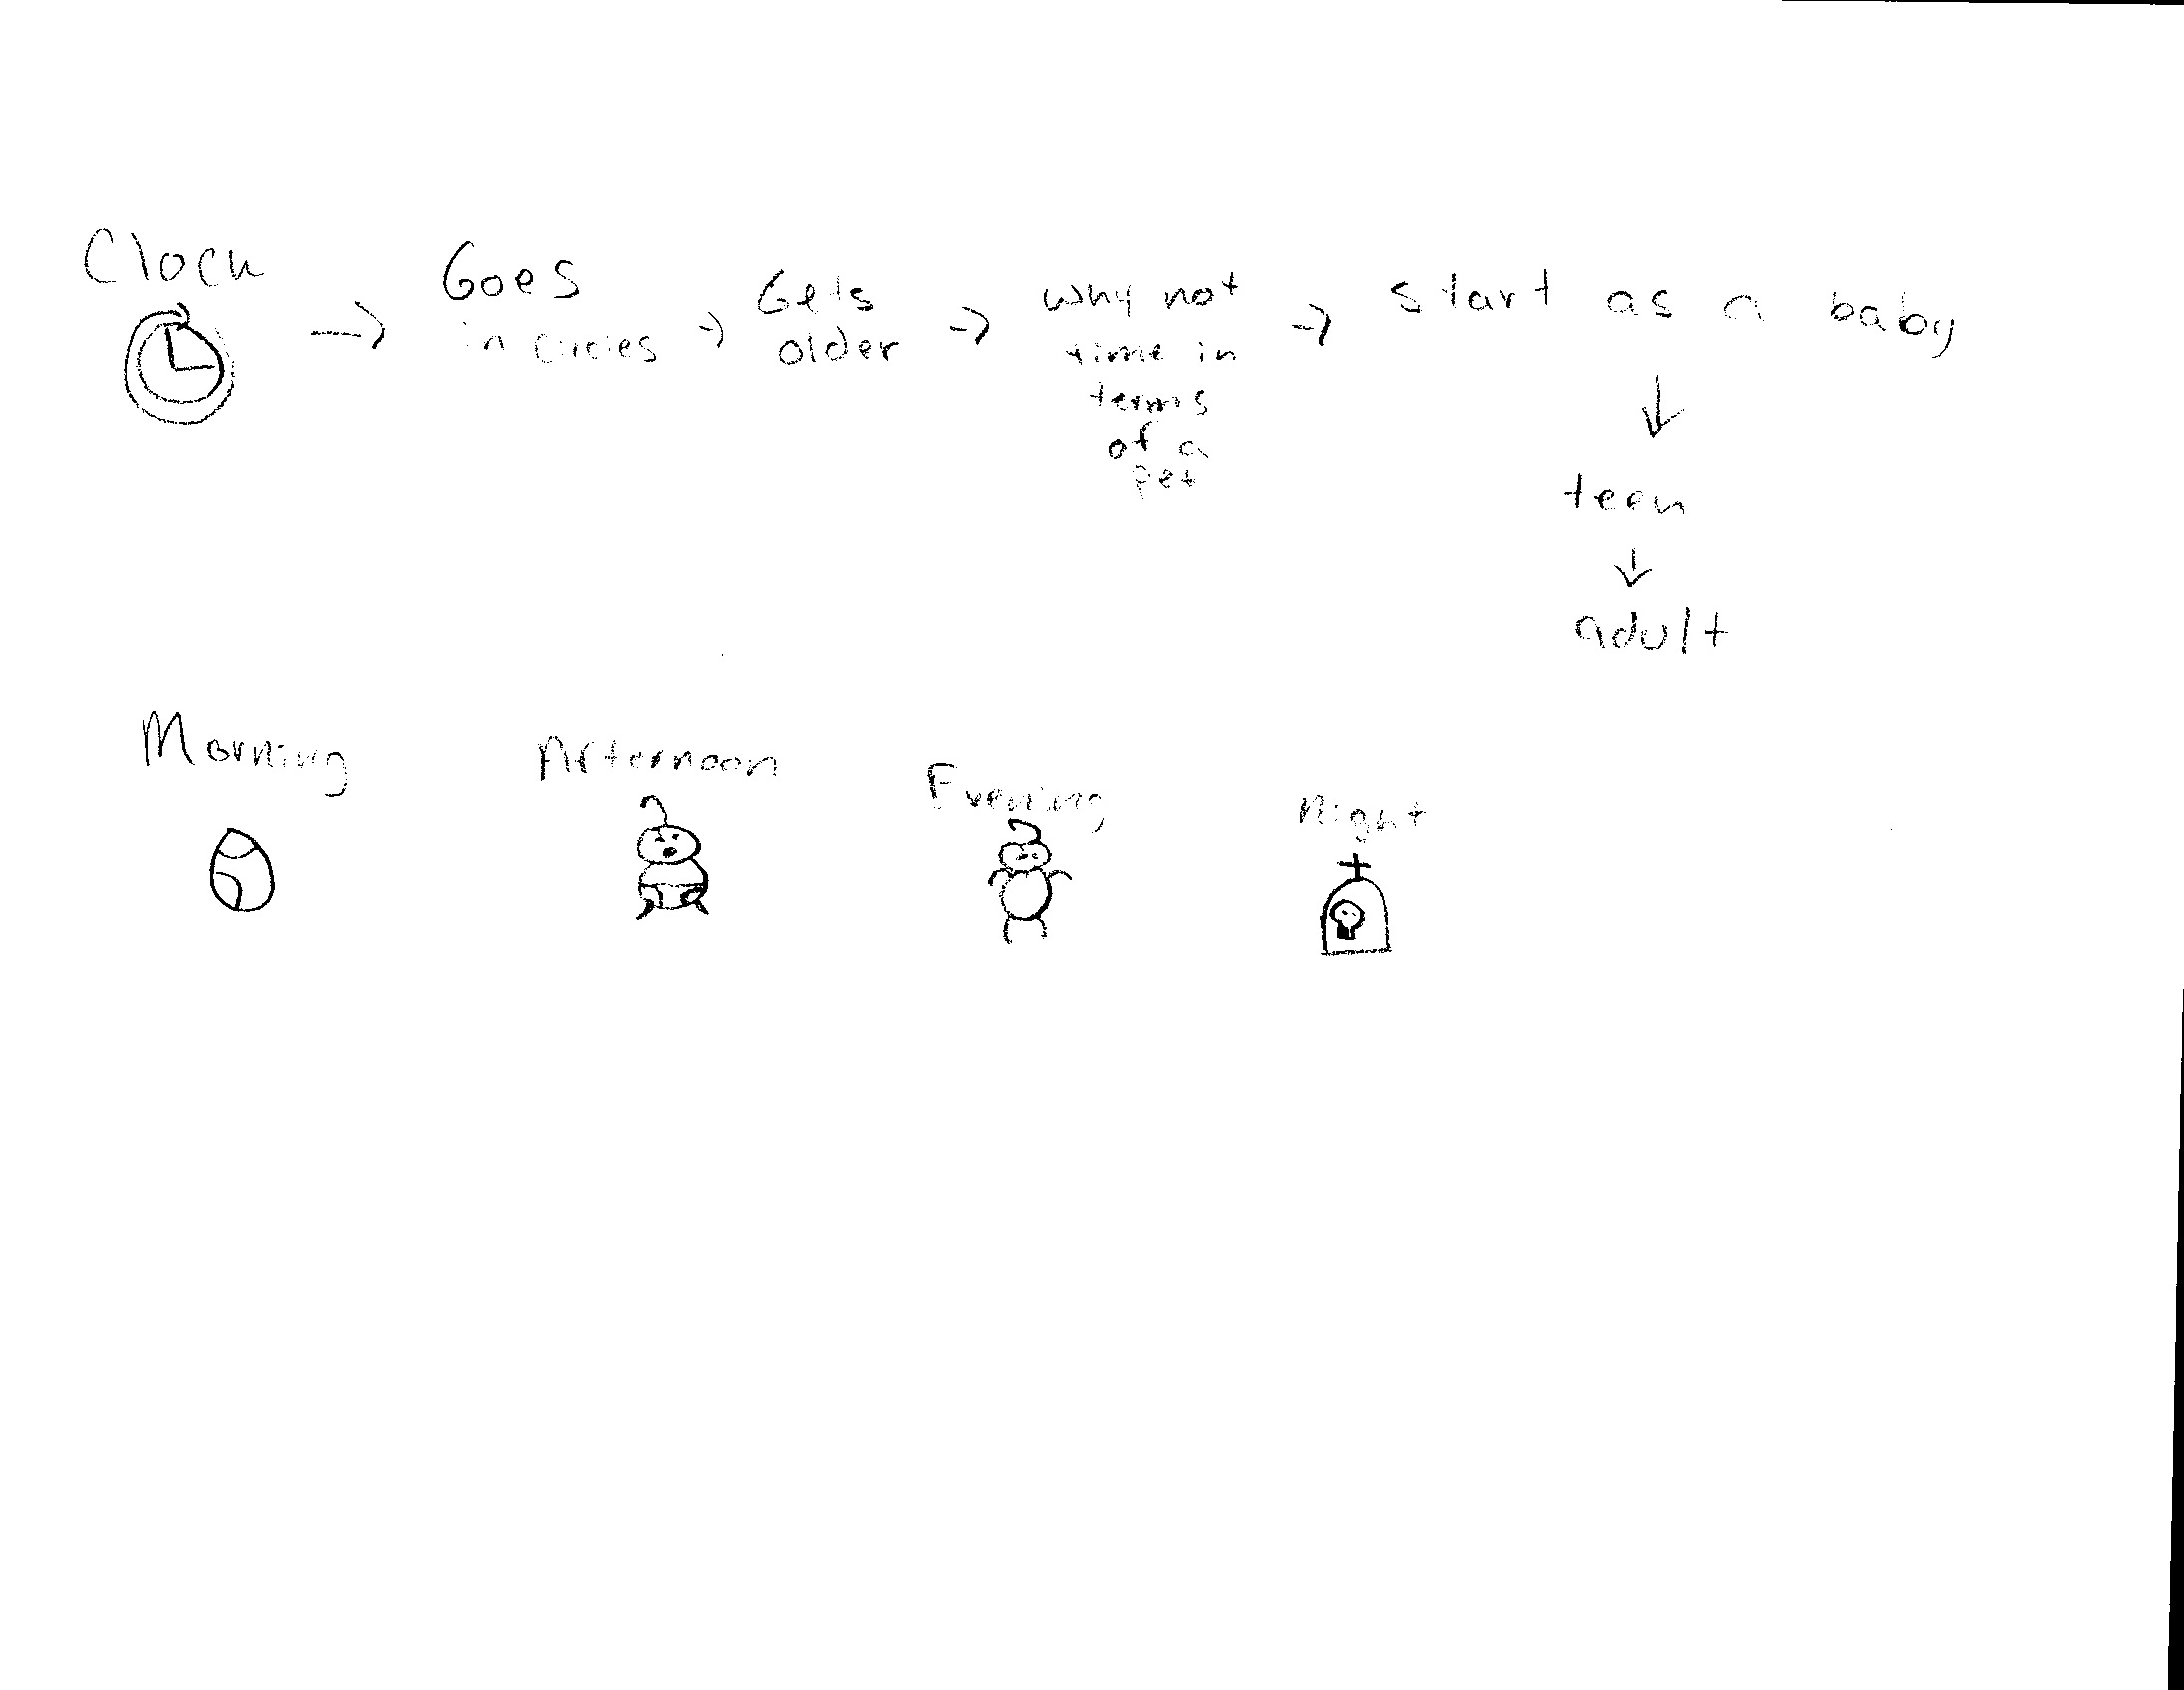 Clock
Goes
in circles
Gets
older
why not
time in
terms
of a
pet
start as a baby
teen
adult
Morning
Afternoon
Evening
Night